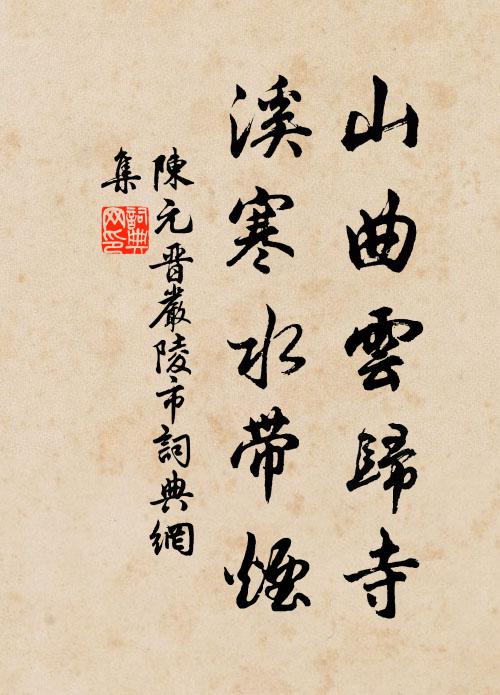 山曲雲歸寺
溪寒水帶煙
陳元晋嚴陵市詞典網
集
詞典網印